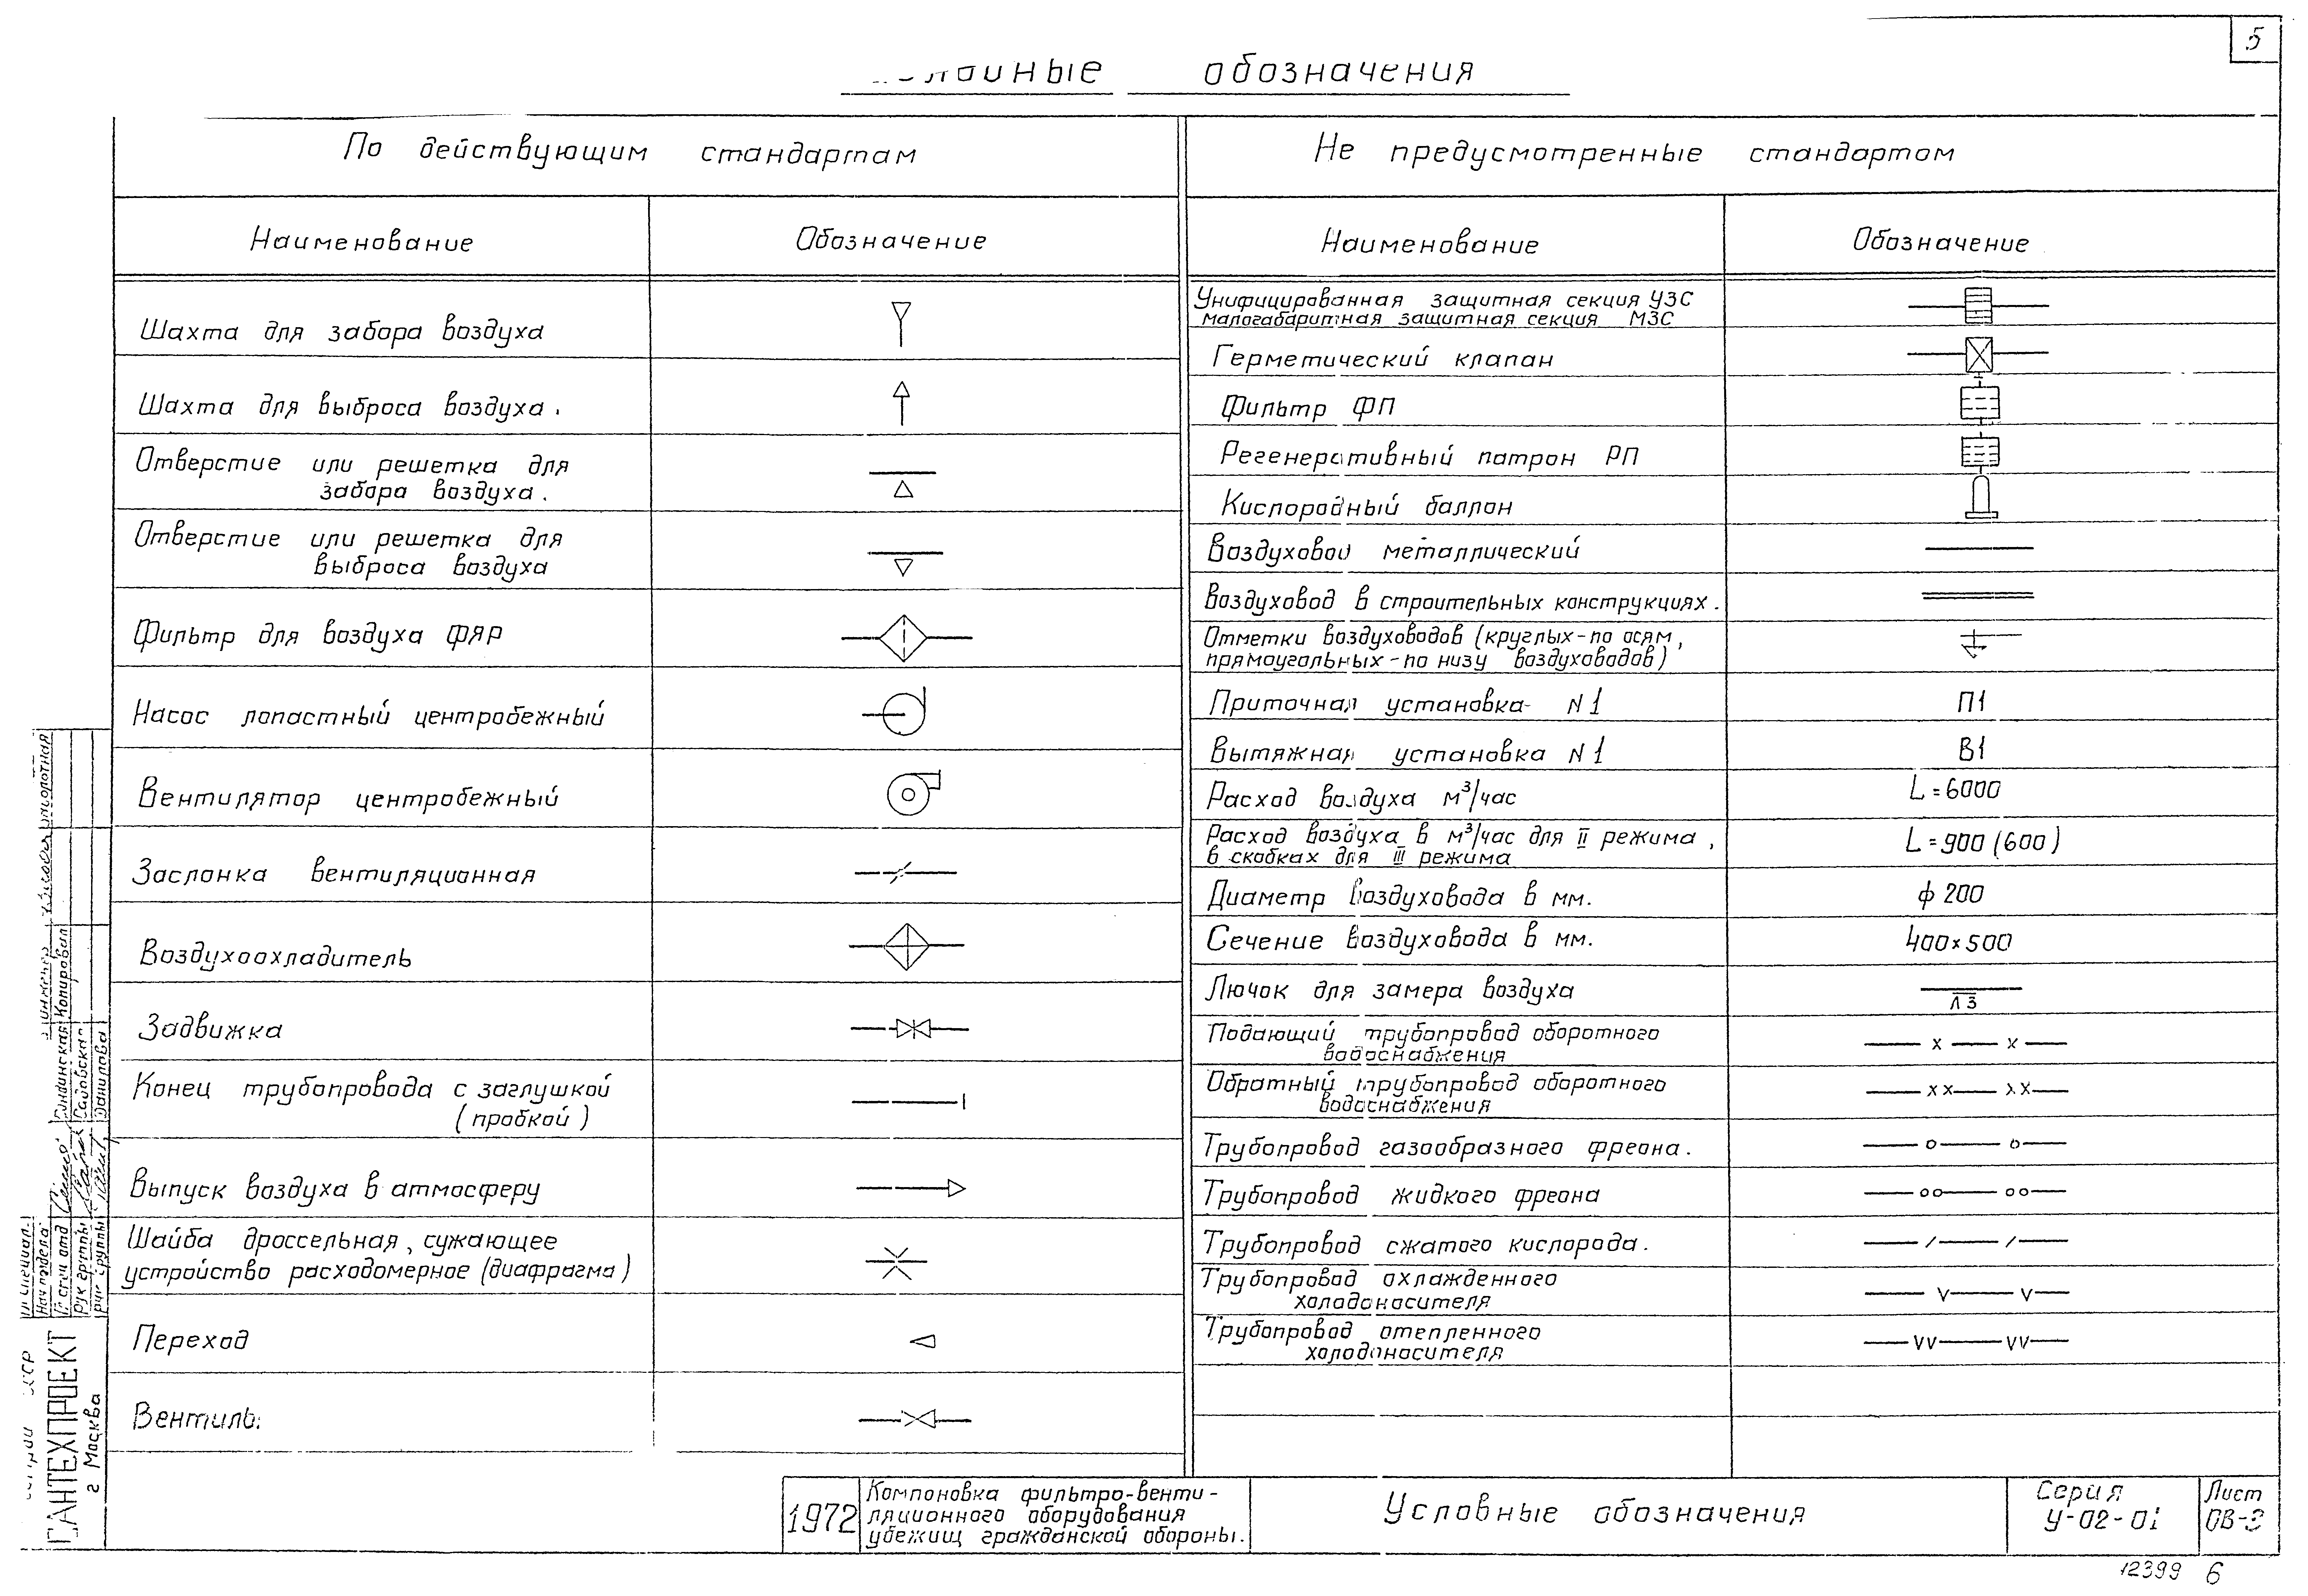 5
обозначения
По действующим стандартам
Наименование Обозначение
Шахта для забора воздуха
Шахта для выброса воздуха.
Отверстие или решетка для
забора воздуха.
Отверстие или решетка для
выброса воздуха
Фильтр для воздуха ФЯР
Насос лопастный центробежный
Вентилятор центробежный
Заслонка вентиляционная
Воздухоохладитель
Задвижка
Конец трубопровода с заглушкой
(пробкой)
Выпуск воздуха в атмосферу
Шайба дроссельная, сужающее
устройство расходомерное (диафрагма)
Переход
Вентиль.
Не предусмотренные стандартом
Наименование Обозначение
Унифицированная защитная секция УЗС
малогабаритная защитная секция МЗС
Герметический клапан
Фильтр ФП
Регенеративный патрон РП
Кислородный баллон
Воздуховод металлический
Воздуховод в строительных конструкциях.
Отметки воздуховодов (круглых-по осям,
прямоугольных-по низу воздуховодов)
Приточная установка N1 П1
Вытяжная установка N1 В1
Расход воздуха м³/час L=6000
Расход воздуха в м³/час для II режима,
в скобках для III режима
L=900(600)
Диаметр воздуховода в мм. ф200
Сечение воздуховода в мм. 400×500
Лючок для замера воздуха
ЛЗ
Подающий трубопровод оборотного
водоснабжения
x x
Обратный трубопровод оборотного
водоснабжения
xx xx
Трубопровод газообразного фреона. o o
Трубопровод жидкого фреона oo oo
Трубопровод сжатого кислорода. / /
Трубопровод охлажденного
холодоносителя
v v
Трубопровод отепленного
холодоносителя
vv vv
1972
Компоновка фильтро-венти-
ляционного оборудования
убежищ гражданской обороны.
Условные обозначения
Серия
У-02-01
Лист
12399 6
САНТЕХПРОЕКТ
г Москва
Рук группы
Данилова
Копировал